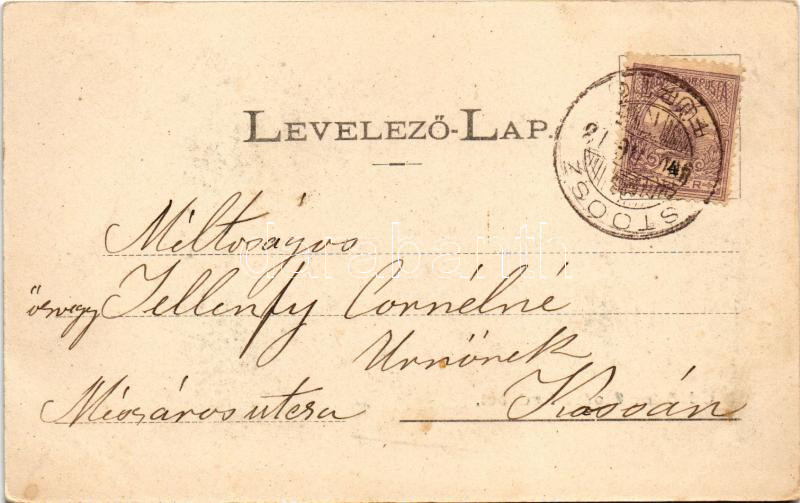 LEVELEZŐ-LAP.
STOOSZ
Méltoságos
özvegy Jellenfy Cornélné
Urnőnek
Mészáros utcza Kassán
darabanth